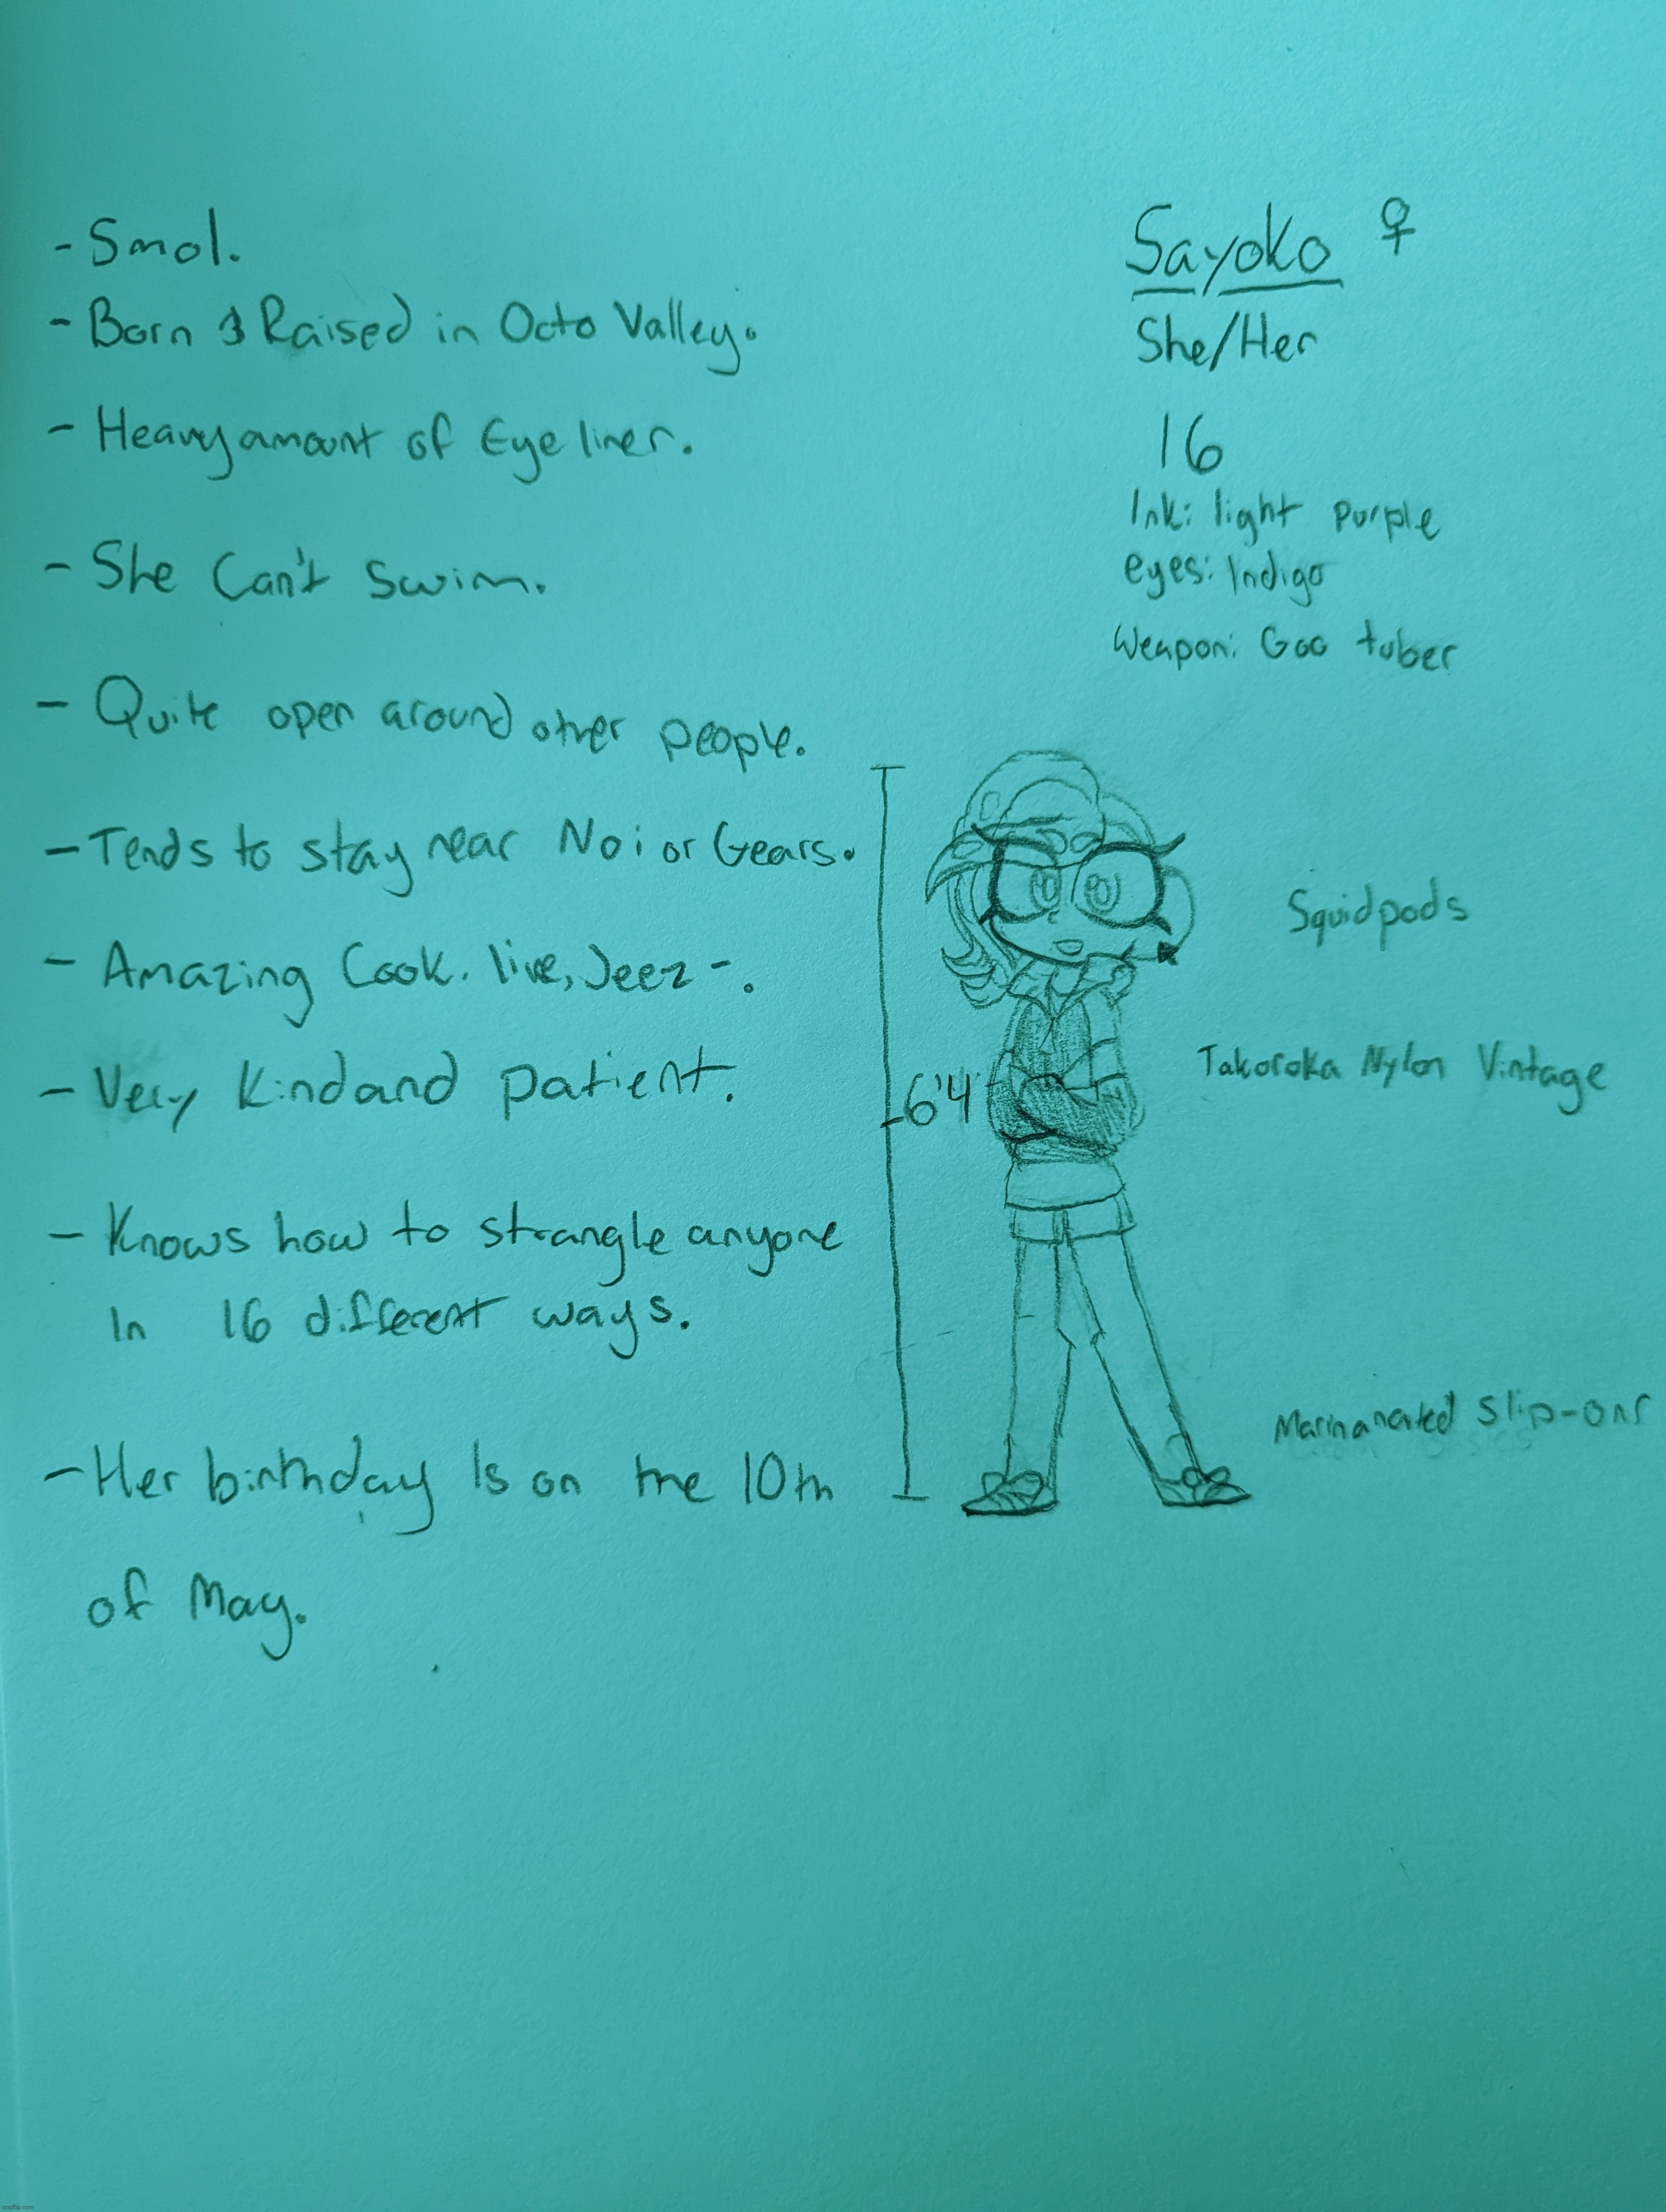 - Smol.
- Born & Raised in Octo Valley.
- Heavy amount of Eye liner.
- She Can't Swim.
- Quite open around other people.
- Tends to stay near Noi or Gears.
- Amazing Cook. like, Jeez -.
- Very Kind and patient.
- Knows how to strangle anyone
In 16 different ways.
- Her birthday Is on the 10th
of May.
Sayoko ♀
She/Her
16
Ink: light purple
eyes: Indigo
Weapon: Goo tuber
6'4
Squidpods
Takoroka Nylon Vintage
Marinanated slip-ons
imgflip.com